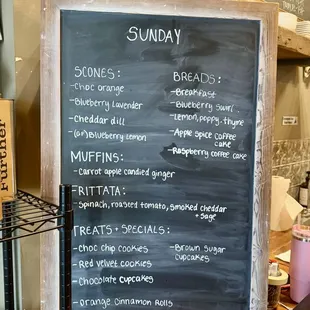 SUNDAY
SCONES:
- Choc orange
- Blueberry lavender
- Cheddar dill
- (GF) Blueberry Lemon
BREADS:
- Breakfast
- Blueberry Swirl
- Lemon, poppy, thyme
- Apple Spice coffee
cake
- Raspberry coffee cake
MUFFINS:
- Carrot apple candied ginger
FRITTATA:
- Spinach, roasted tomato, smoked cheddar
+ sage
TREATS + SPECIALS:
- Choc chip cookies
- Red velvet cookies
- Chocolate Cupcakes
- Orange Cinnamon Rolls
- Brown Sugar
Cupcakes
Further